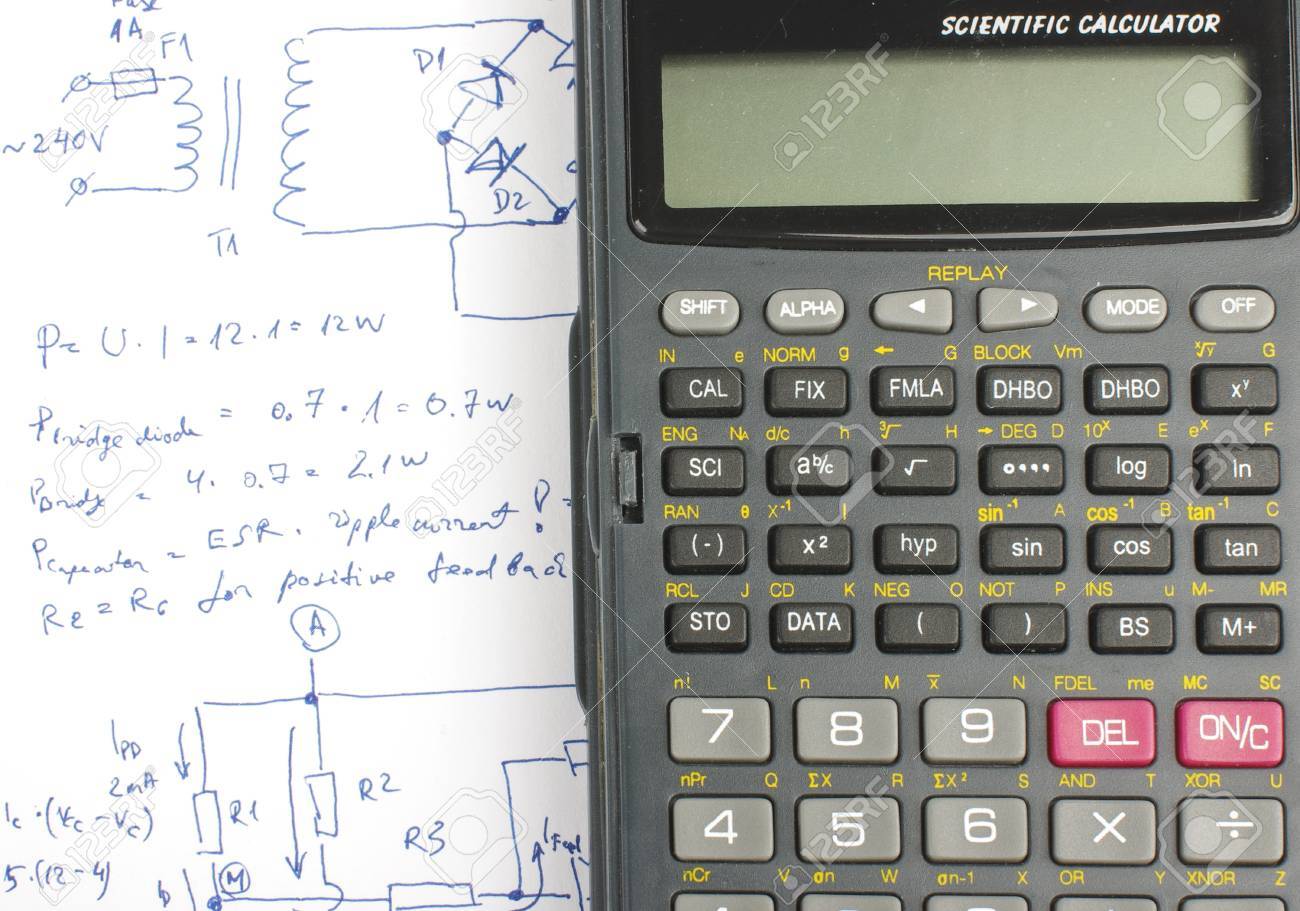 Fuse
1A
F1
~240V
T1
D1
D2
P = U · I = 12 · 1 = 12W
P bridge diode = 0.7 · 1 = 0.7W
P Bridge = 4 · 0.7 = 2.1W
P capacitor = ESR · ripple current ! =
R2 = R6 for positive feed back
A
IPD
2mA
R1
R2
R3
Ic · (Vc - Vc)
5 · (12 - 4)
M
SCIENTIFIC CALCULATOR
REPLAY
SHIFT ALPHA ◄ ► MODE OFF
IN e NORM g ← G BLOCK Vm ˣ√y G
CAL FIX FMLA DHBO DHBO xʸ
ENG NA d/c h ³√ H → DEG D 10ˣ E eˣ F
SCI ab/c √ log ln
RAN θ X⁻¹ I sin⁻¹ A cos⁻¹ B tan⁻¹ C
(-) x² hyp sin cos tan
RCL J CD K NEG O NOT P INS u M- MR
STO DATA ( ) BS M+
n! L n M x̅ N FDEL me MC SC
7 8 9 DEL ON/C
nPr Q ΣX R ΣX² S AND T XOR U
4 5 6 × ÷
nCr V σn W σn-1 X OR Y XNOR Z
123RF